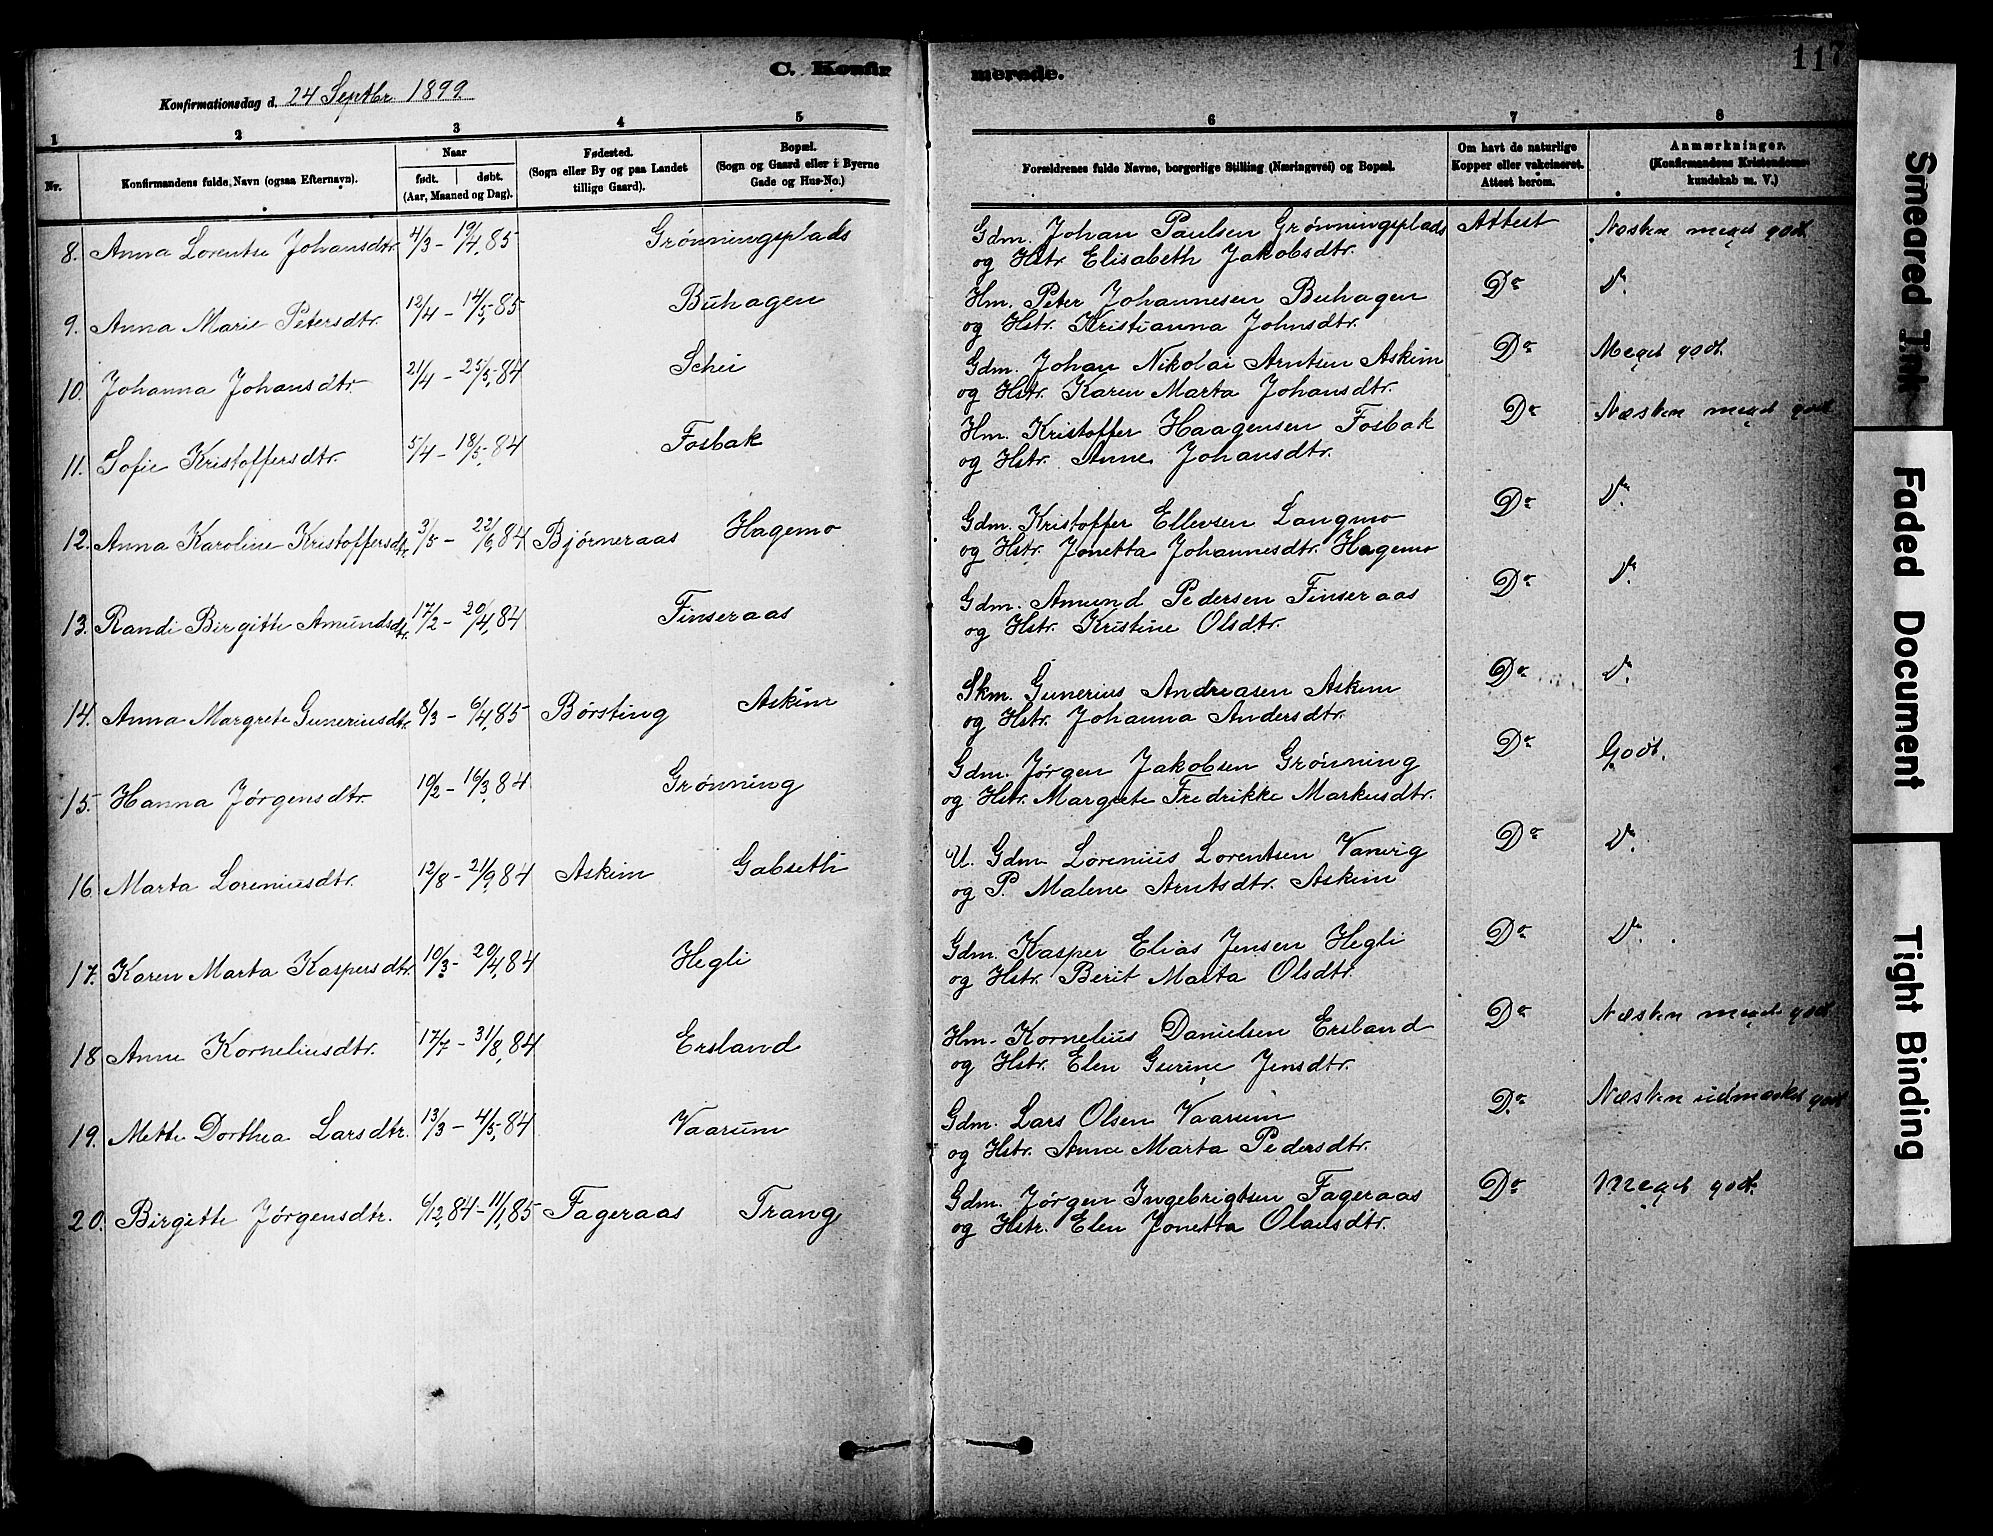 C. Konfirmerede.
117
Konfirmationsdag d. 24 Septbr 1899
1 2 3 4 5 6 7 8
Nr. Konfirmandens fulde Navn (ogsaa Efternavn). Naar født. døbt. (Aar, Maaned og Dag). Fødested. (Sogn eller By og paa Landet tillige Gaard). Bopæl. (Sogn og Gaard eller i Byerne Gade og Hus-No.) Forældrenes fulde Navne, borgerlige Stilling (Næringsvei) og Bopæl. Om havt de naturlige Kopper eller vakcineret. Attest herom. Anmærkninger. (Konfirmandens Kristendomskundskab m. V.)
8. Anna Lorentse Johansdtr. 4/3 - 19/4 85 Grønningsplads Gdm. Johan Paulsen Grønningsplads Attest Næsten meget godt.
og Hstr. Elisabeth Jakobsdtr.
9. Anna Marie Petersdtr. 12/4 - 14/5, 85 Buhagen Hm. Peter Johannesen Buhagen Do
og Hstr. Kristianna Johnsdtr.
10. Johanna Johansdtr. 21/4 - 25/5, 84 Schei Gdm. Johan Nikolai Arntsen Askim Do Meget godt.
og Hstr. Karen Marta Johansdtr.
11. Sofie Kristoffersdtr. 5/4 - 18/5, 84 Fosbak Hm. Kristoffer Haagensen Fosbak Do Næsten meget godt
og Hstr. Anne Johansdtr.
12. Anna Karoline Kristoffersdtr. 3/5 - 22/6, 84 Bjørneraas Hagemo Gdm. Kristoffer Ellevsen Langmo Do
og Hstr. Jonetta Johannesdtr. Hagemo
13. Randi Birgitte Amundsdtr. 17/2 - 20/4, 84 Finseraas Gdm. Amund Pedersen Finseraas Do
og Hstr. Kristine Olsdtr.
14. Anna Margrete Guneriusdtr. 8/3 - 6/4, 85 Børsting Askim Skm. Gunerius Andreasen Askim Do
og Hstr. Johanna Andersdtr.
15. Hanna Jørgensdtr. 10/2 - 16/3, 84 Grønning Gdm. Jørgen Jakobsen Grønning Do Godt.
og Hstr. Margrete Fredrikke Markusdtr.
16 Marta Loreniusdtr. 12/8 - 21/9, 84 Askim Gabseth U. Gdm Lorenius Lorentsen Vanvig Do
og P. Malene Arntsdtr. Askim
17. Karen Marta Kaspersdtr. 10/3 - 20/4, 84 Hegli Gdm. Kasper Elias Jensen Hegli Do
og Hstr. Berit Marta Olsdtr.
18 Anne Korneliusdtr. 17/7 - 31/8, 84 Ersland Hm. Kornelius Danielsen Ersland Do Næsten meget godt.
og Hstr. Elen Gurine Jensdtr.
19. Mette Dorthea Larsdtr. 13/3 - 4/5, 84 Vaarum Gdm. Lars Olsen Vaarum Do Næsten udmærket godt
og Hstr. Anne Marta Pedersdtr.
20. Birgitte Jørgensdtr. 6/12, 84 - 11/1, 85 Fageraas Trang Gdm. Jørgen Ingebrigtsen Fageraas Do Meget godt.
og Hstr. Elen Jonetta Olausdtr.
Smeared Ink
Faded Document
Tight Binding